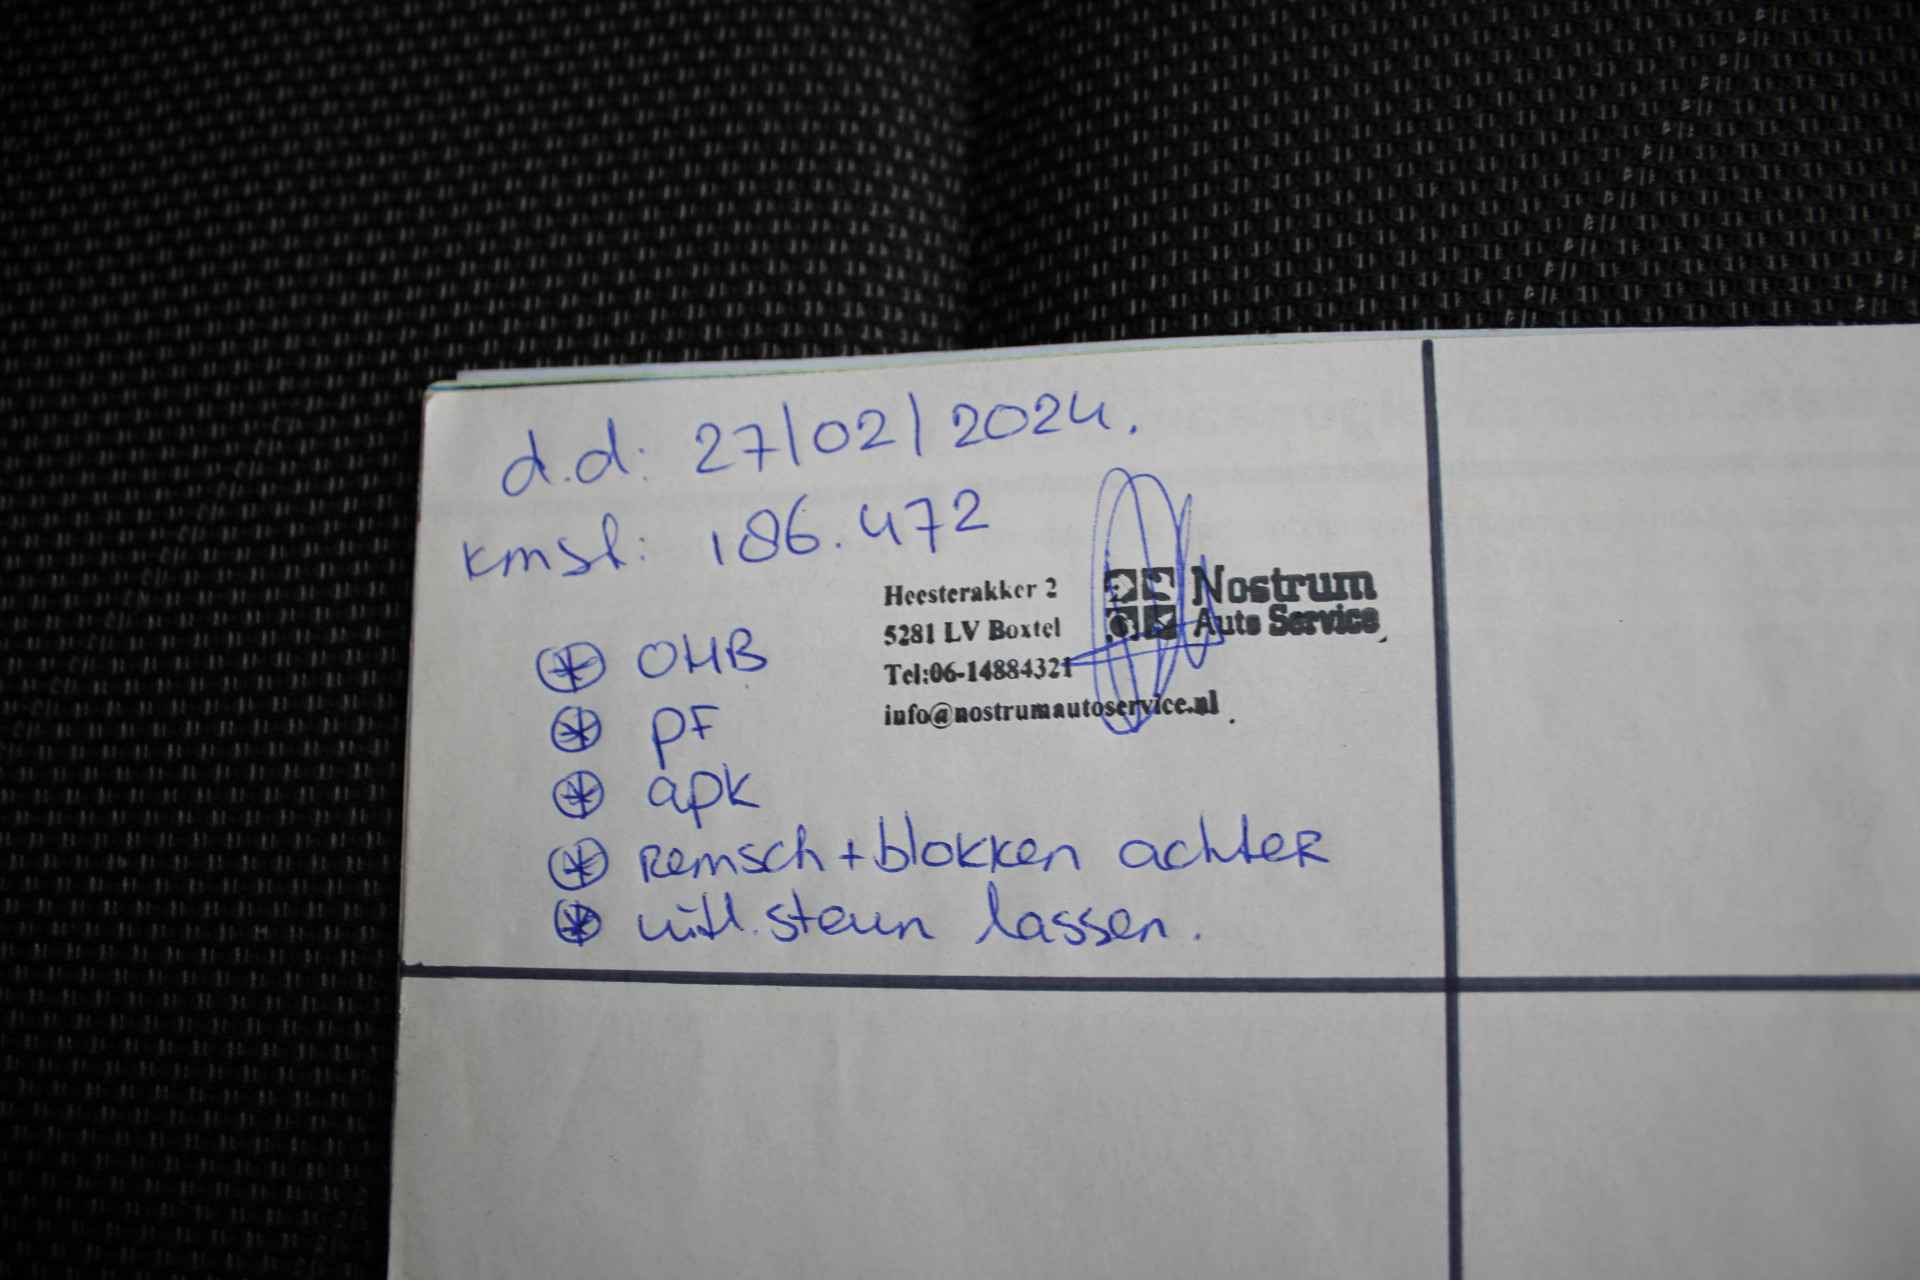 d.d: 27/02/2024.
kmst: 186.472
Heesterakker 2
5281 LV Boxtel
Tel:06-14884321
info@nostrumautoservice.nl
Nostrum
Auto Service
OHB
PF
apk
Remsch+blokken achter
uitl. steun lassen.